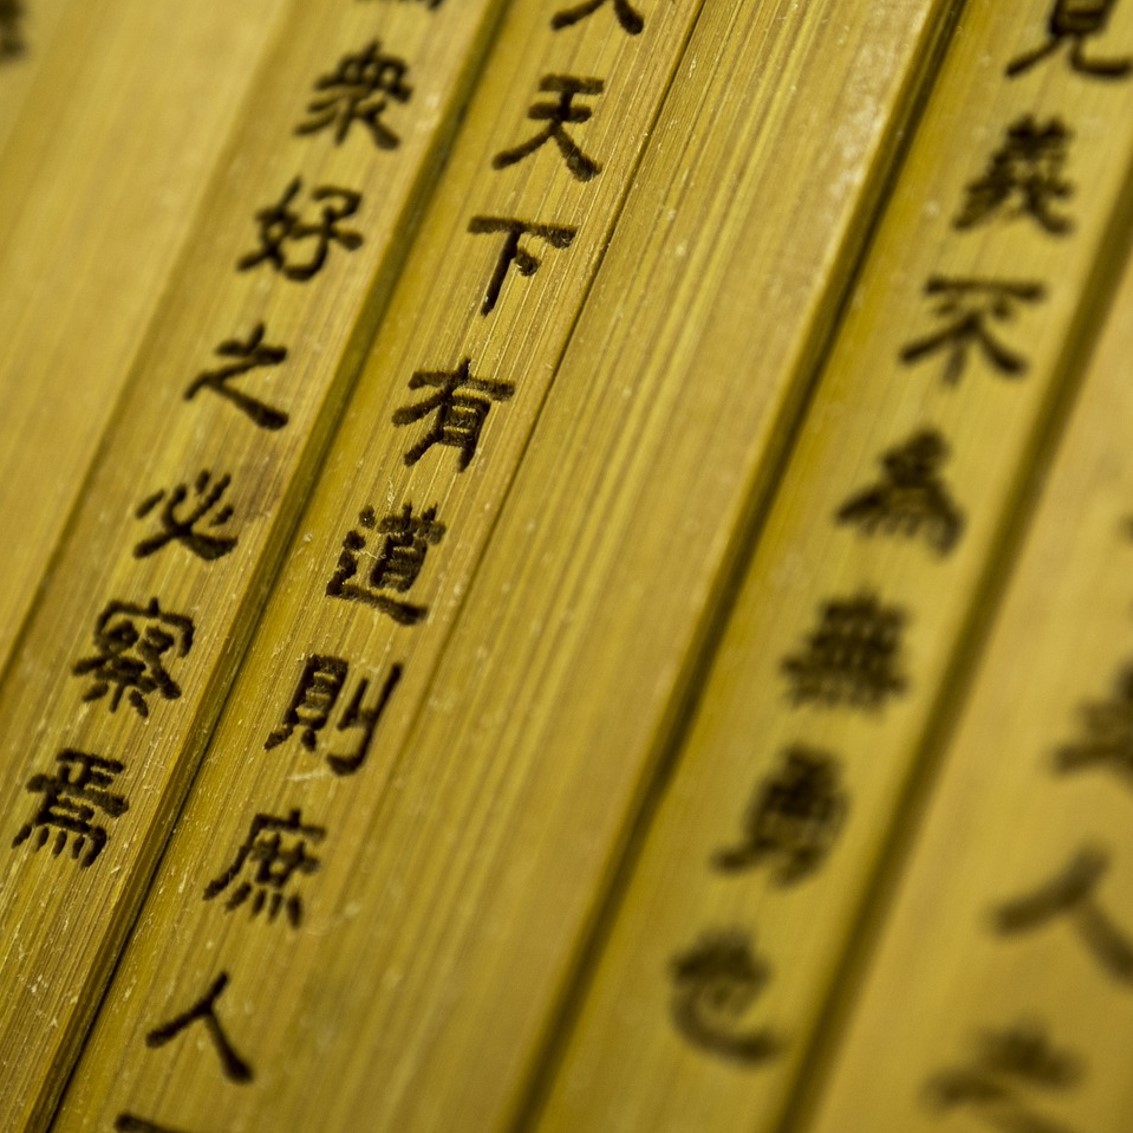 人
見義不為無勇也
天下有道則庶人
衆好之必察焉